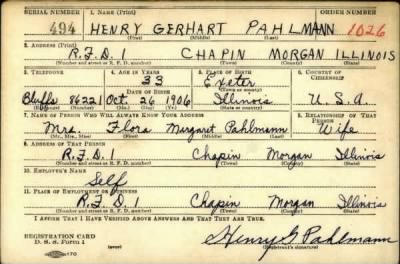 SERIAL NUMBER 1. NAME (Print) ORDER NUMBER
494 HENRY GERHART PAHLMANN 1026
(First) (Middle) (Last)
2. ADDRESS (Print)
R.F.D. 1 CHAPIN MORGAN ILLINOIS
(Number and street or R. F. D. number) (Town) (County) (State)
3. TELEPHONE 4. AGE IN YEARS 5. PLACE OF BIRTH 6. COUNTRY OF CITIZENSHIP
33 Exeter
DATE OF BIRTH (Town or county)
Bluffs 86221 Oct. 26 1906 Illinois U.S.A.
(Exchange) (Number) (Mo.) (Day) (Yr.) (State or country)
7. NAME OF PERSON WHO WILL ALWAYS KNOW YOUR ADDRESS 8. RELATIONSHIP OF THAT PERSON
Mrs. Flora Margaret Pahlmann Wife
(Mr., Mrs., Miss) (First) (Middle) (Last)
9. ADDRESS OF THAT PERSON
R.F.D. 1 Chapin Morgan Illinois
(Number and street or R. F. D. number) (Town) (County) (State)
10. EMPLOYER'S NAME
Self
11. PLACE OF EMPLOYMENT OR BUSINESS
R.F.D. 1 Chapin Morgan Illinois
(Number and street or R. F. D. number) (Town) (County) (State)
I AFFIRM THAT I HAVE VERIFIED ABOVE ANSWERS AND THAT THEY ARE TRUE.
REGISTRATION CARD
D. S. S. Form 1 (over) Henry G. Pahlmann
(Registrant's signature)